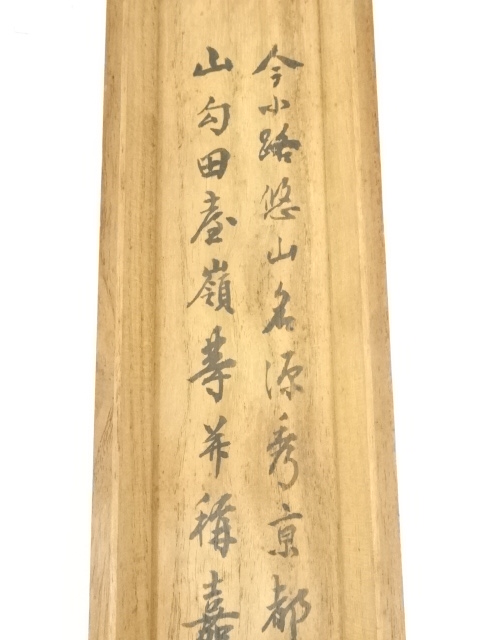 今小路悠山名源秀京都
山勾田臺嶺等并稱嘉